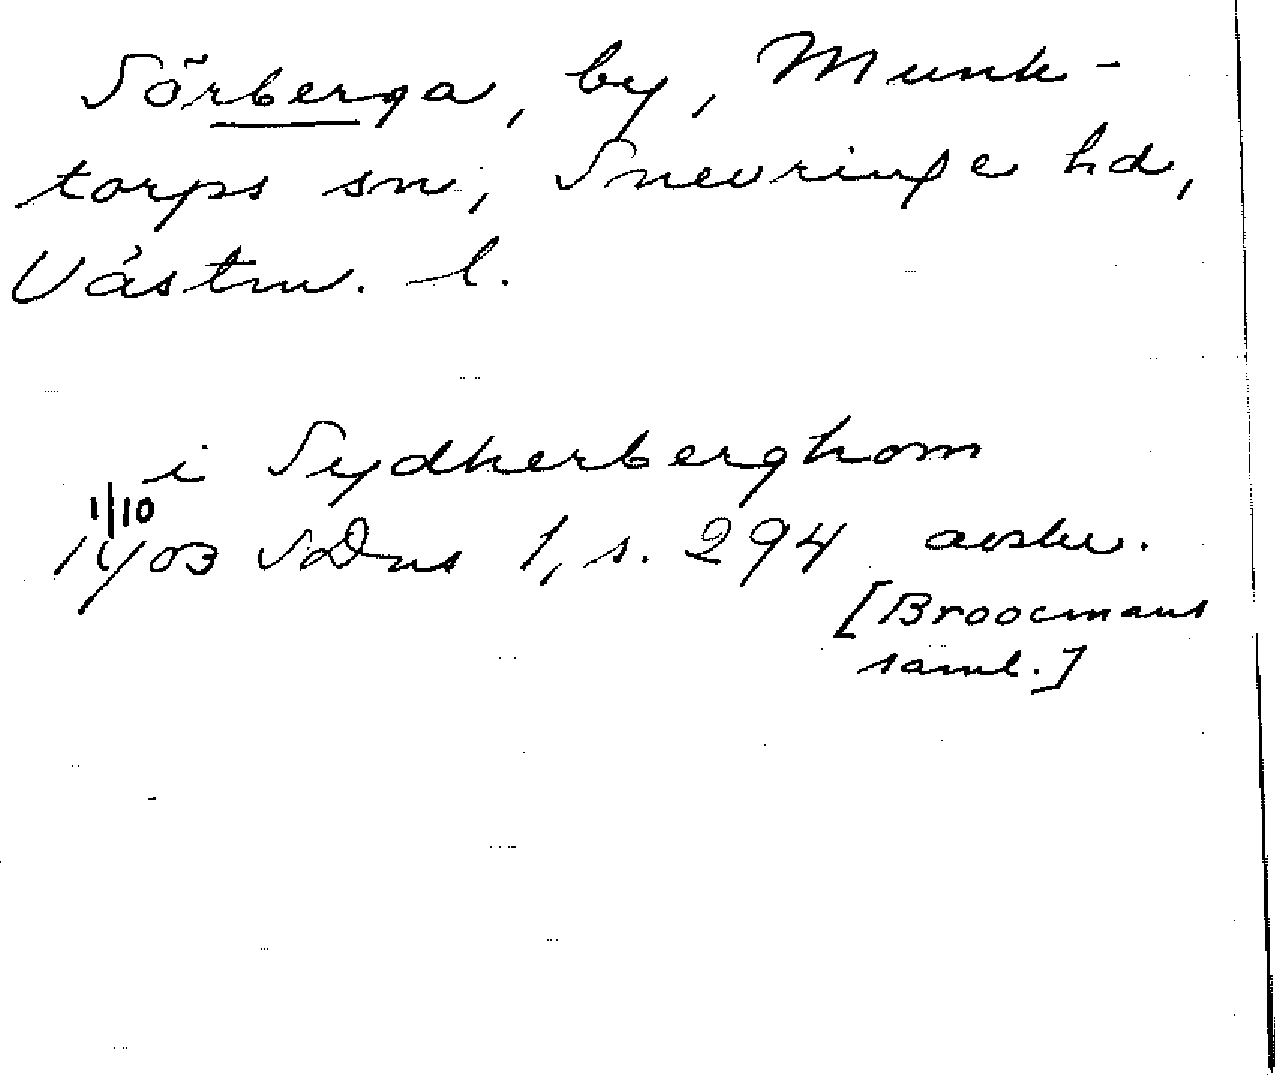 Sörberga, by, Munk-
torps sn, Snevringe hd,
Västm. l.
i Sydherberghom
1/10
1403 SDns 1, s. 294 avskr.
[Broocmans
saml.]